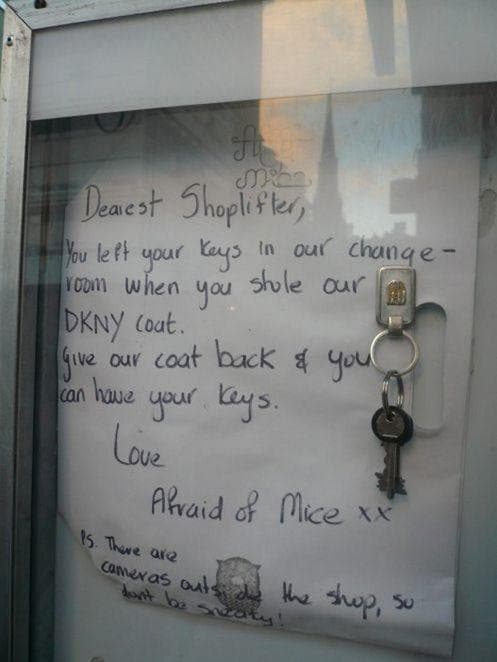 Dearest Shoplifter,
You left your keys in our change-
room when you stole our
DKNY coat.
Give our coat back & you
can have your keys.
Love
Afraid of Mice xx
Ps. There are
cameras outside the shop, so
don't be sneaky!